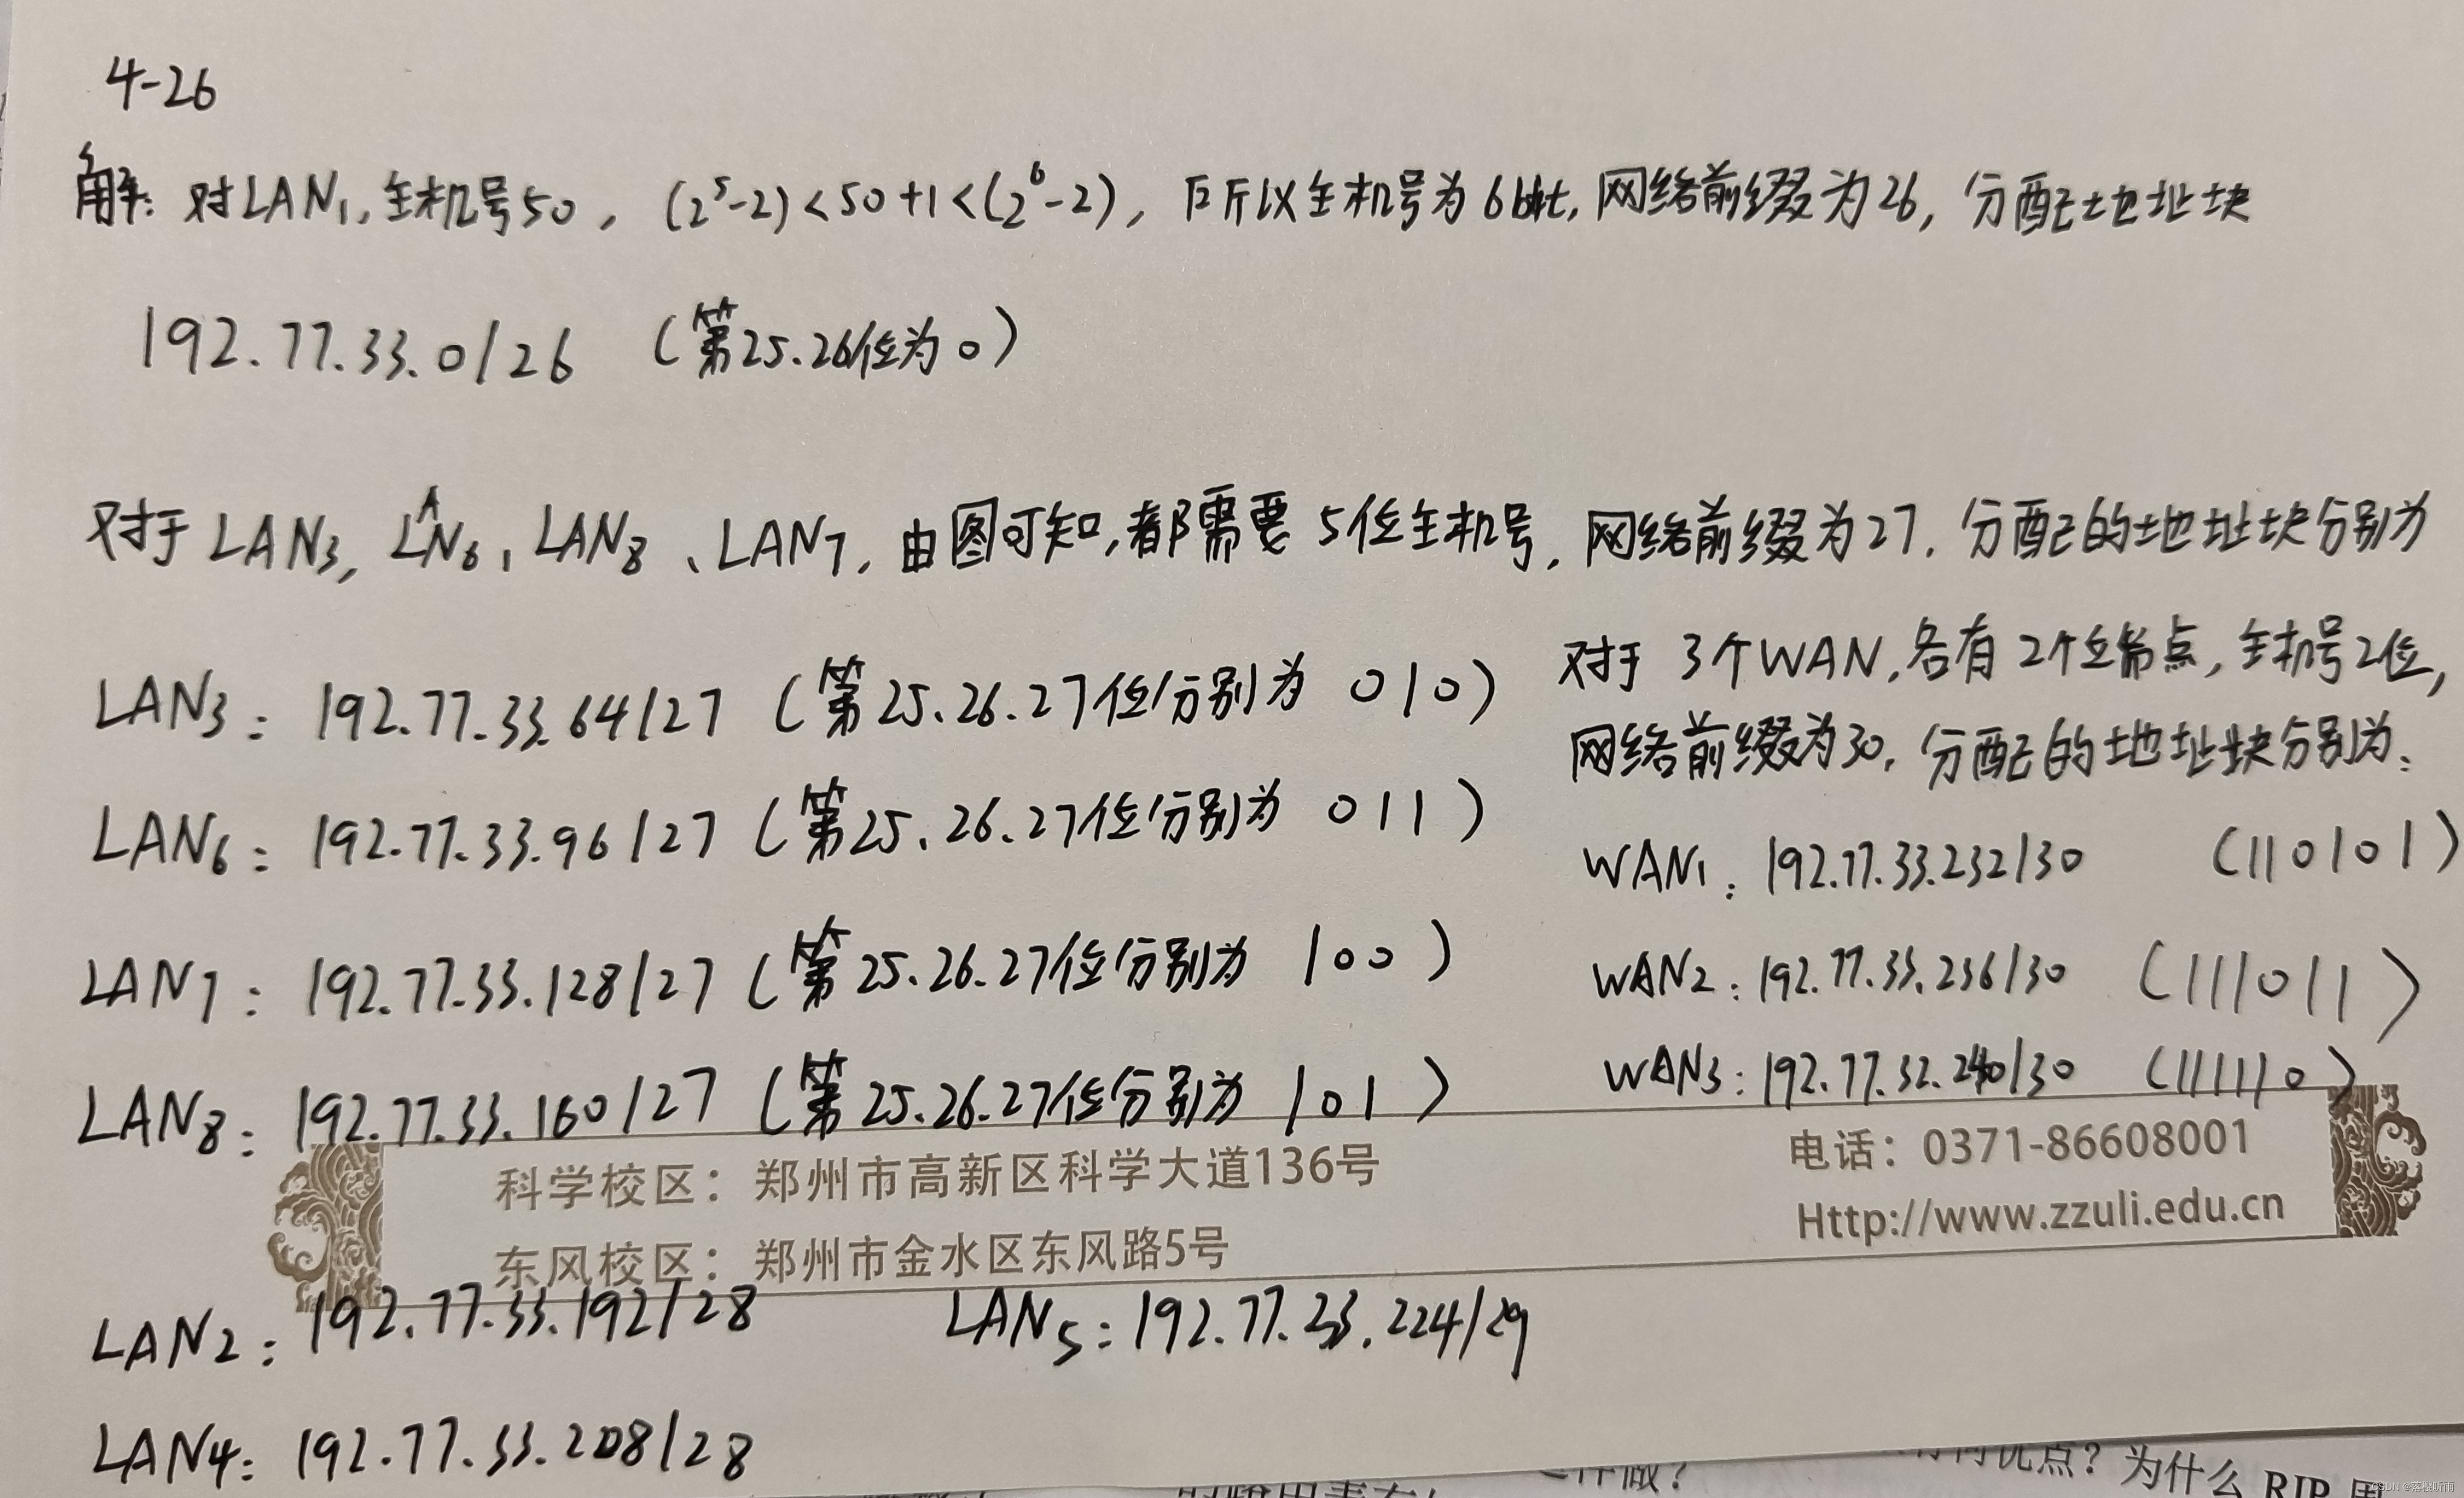 4-26
解: 对LAN1, 主机号50, (2^5-2)<50+1<(2^6-2), 所以主机号为6bit, 网络前缀为26, 分配地址块
192.77.33.0/26 (第25.26位为0)
对于LAN3, LAN6, LAN8、LAN7, 由图可知, 都需要5位主机号, 网络前缀为27, 分配的地址块分别为
LAN3: 192.77.33.64/27 (第25.26.27位分别为 010)
LAN6: 192.77.33.96/27 (第25.26.27位分别为 011)
LAN7: 192.77.33.128/27 (第25.26.27位分别为 100)
LAN8: 192.77.33.160/27 (第25.26.27位分别为 101)
对于 3个WAN, 各有2个端点, 主机号2位,
网络前缀为30, 分配的地址块分别为:
WAN1: 192.77.33.232/30 (110101)
WAN2: 192.77.33.236/30 (111011)
WAN3: 192.77.32.240/30 (111110)
科学校区：郑州市高新区科学大道136号
东风校区：郑州市金水区东风路5号
电话：0371-86608001
Http://www.zzuli.edu.cn
LAN2: 192.77.33.192/28
LAN5: 192.77.33.224/29
LAN4: 192.77.33.208/28
优点？为什么 RIP
做？
CSDN @落樱听雨